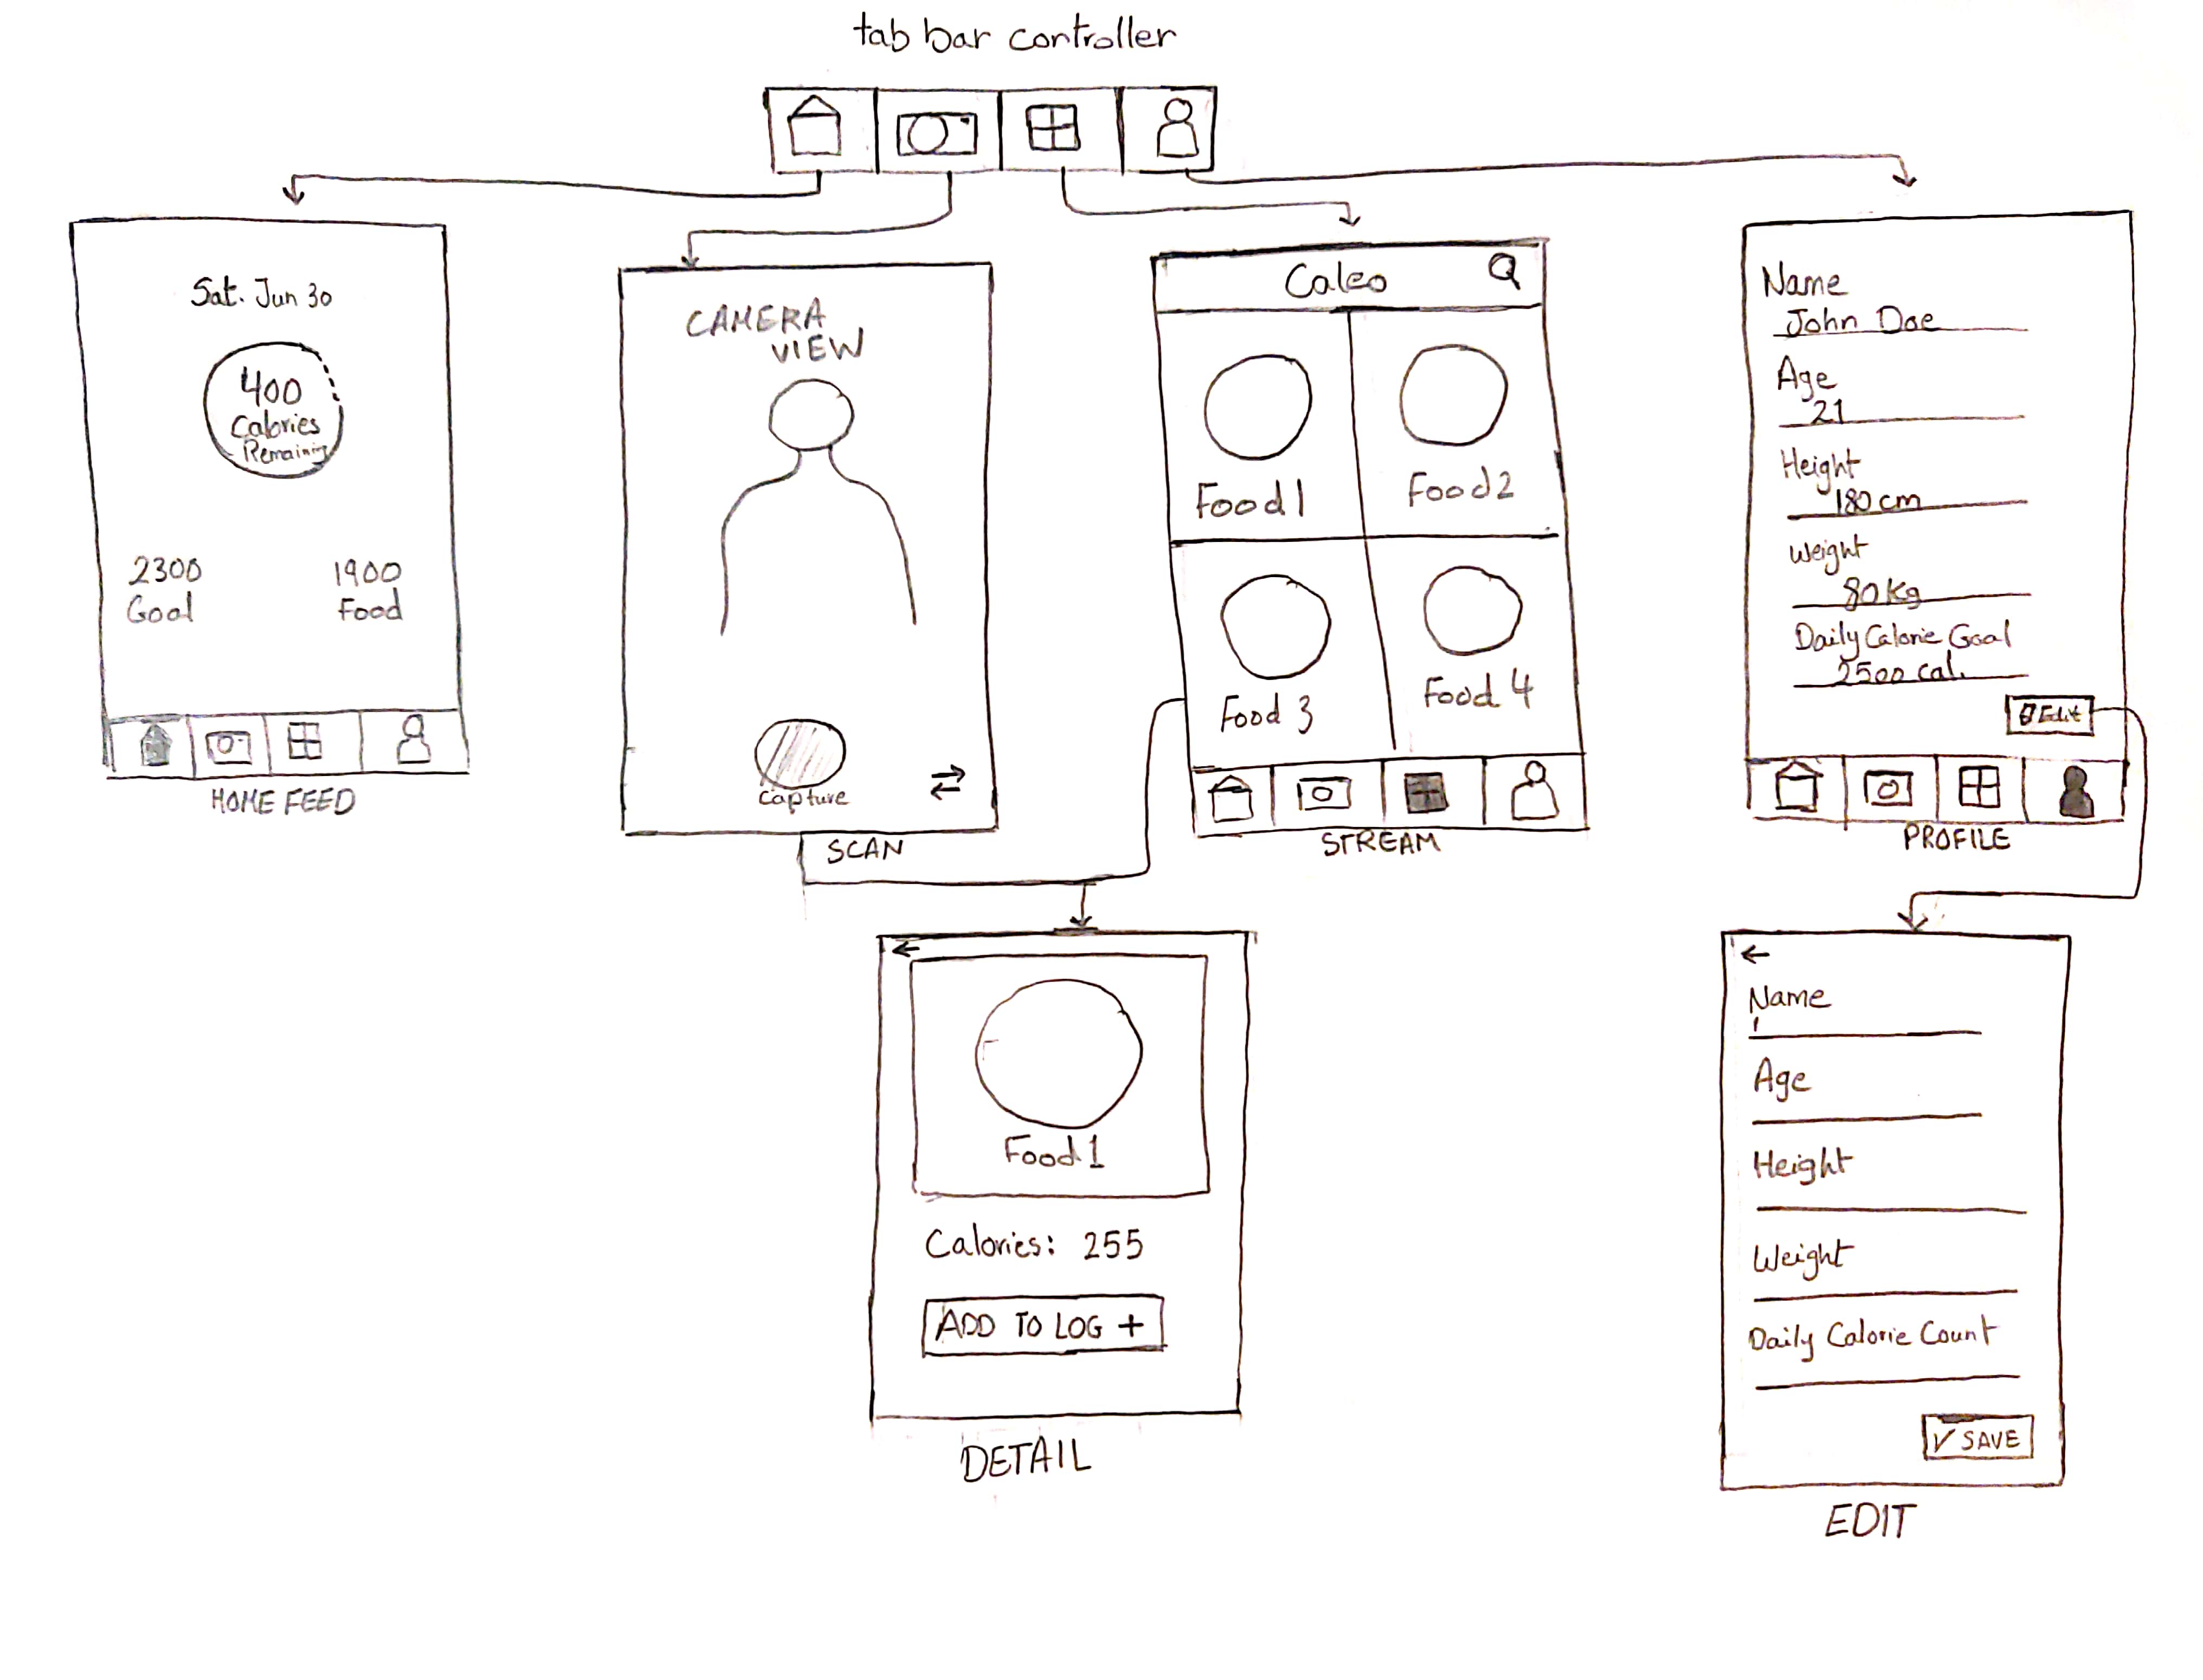 tab bar controller
Sat. Jun 30
400
Calories
Remaining
2300
Goal
1900
Food
HOME FEED
CAMERA
VIEW
capture
SCAN
Caleo
Food 1
Food 2
Food 3
Food 4
STREAM
Name
John Doe
Age
21
Height
180 cm
Weight
80 Kg
Daily Calorie Goal
2500 cal.
Edit
PROFILE
Food 1
Calories: 255
ADD TO LOG +
DETAIL
Name
Age
Height
Weight
Daily Calorie Count
✓ SAVE
EDIT